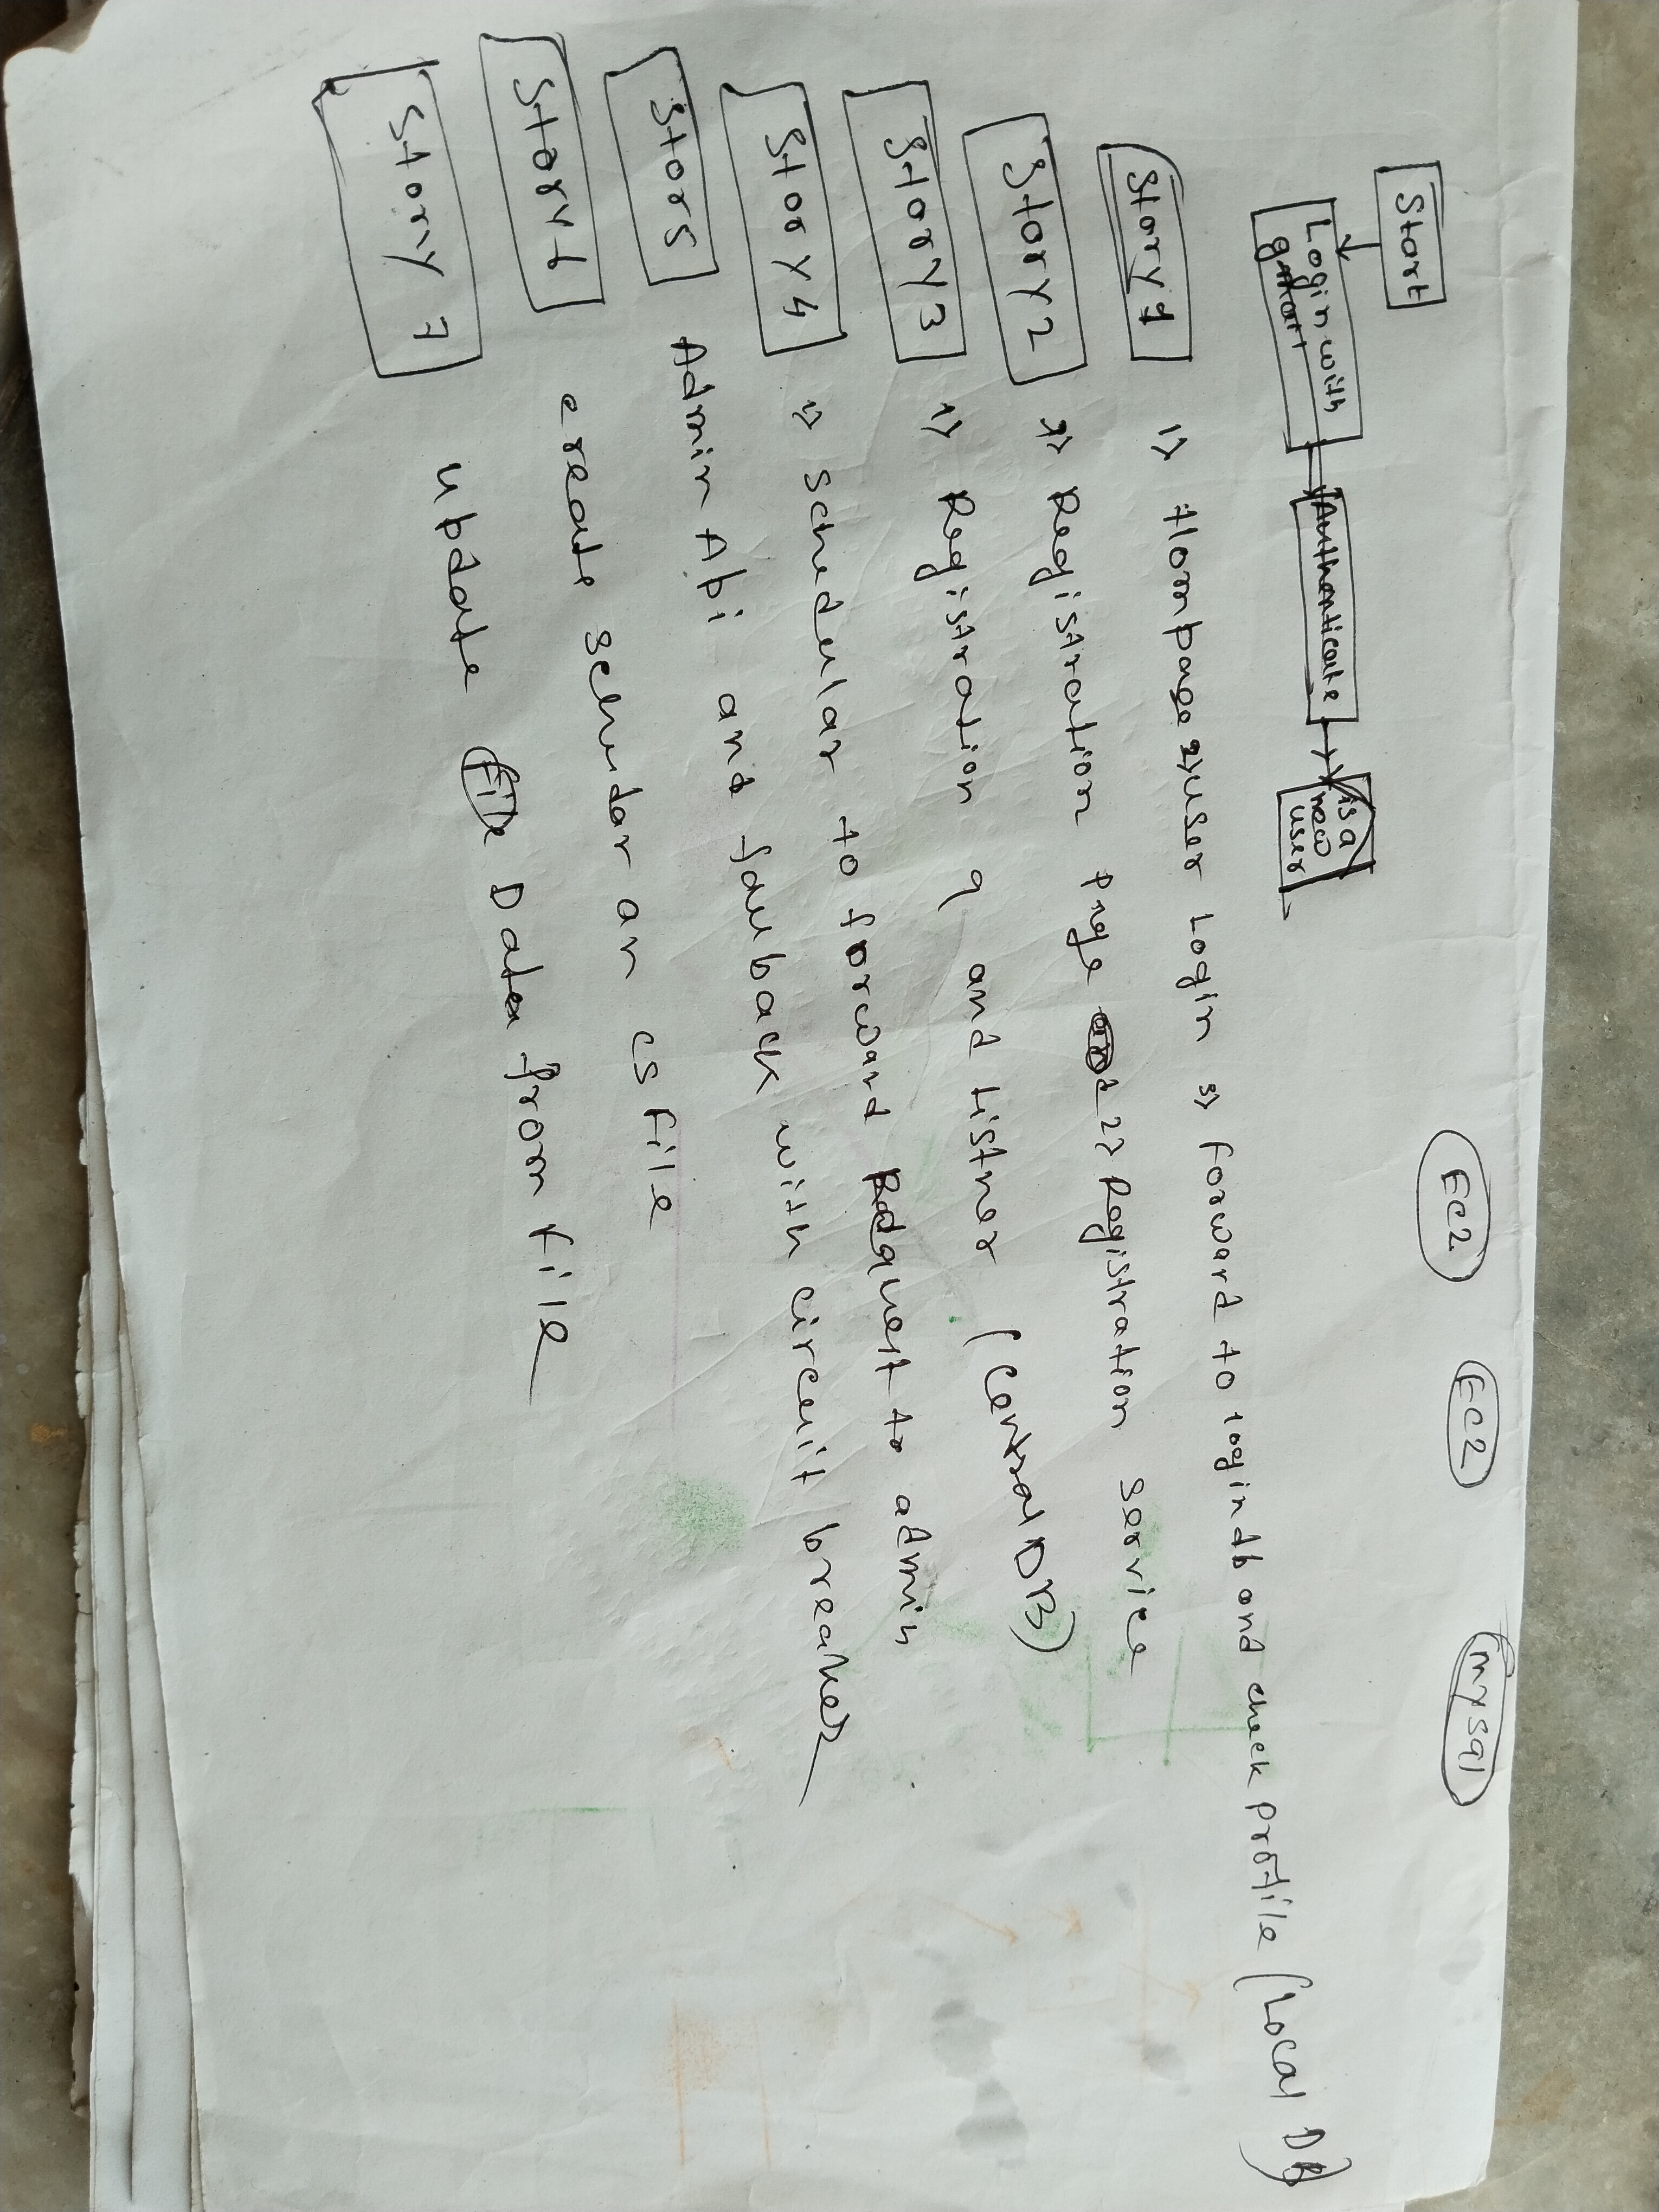 Start
EC2 EC2 mysql
Login with
Authenticate
is a
new
user
Story 1 1> Hompage 2> user Login 3> forward to login db and check profile (Local DB)
Story 2 1> Registration Page 2> Registration service
Story 3 1> Registration q and Listner (Central DB)
Story 4 1> schedular to forward Request to admin
Stor 5 Admin Api and faulback with circuit breaker
Story 6 create scheudar an cs File
Story 7 update File Data from File